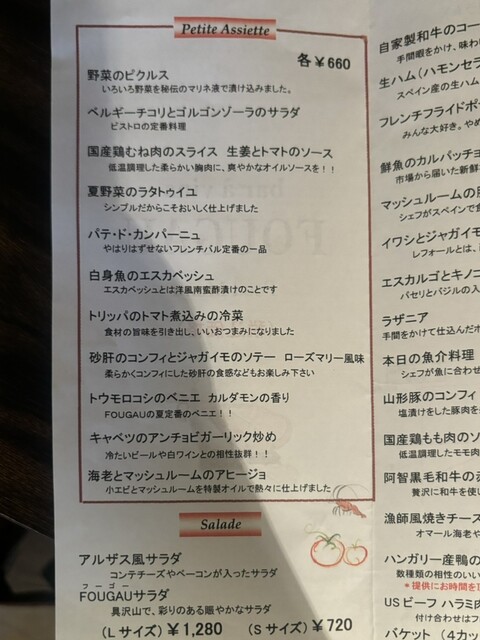 Petite Assiette
各￥660
野菜のピクルス
いろいろ野菜を秘伝のマリネ液で漬け込みました。
ベルギーチコリとゴルゴンゾーラのサラダ
ビストロの定番料理
国産鶏むね肉のスライス 生姜とトマトのソース
低温調理した柔らかい胸肉に、爽やかなオイルソースを！！
夏野菜のラタトゥイユ
シンプルだからこそおいしく仕上げました
パテ・ド・カンパーニュ
やはりはずせないフレンチバル定番の一品
白身魚のエスカベッシュ
エスカベッシュとは洋風南蛮酢漬けのことです
トリッパのトマト煮込みの冷菜
食材の旨味を引き出し、いいおつまみになりました
砂肝のコンフィとジャガイモのソテー ローズマリー風味
柔らかくコンフィにした砂肝の食感などもお楽しみ下さい
トウモロコシのベニエ カルダモンの香り
FOUGAUの夏定番のベニエ！！
キャベツのアンチョビガーリック炒め
冷たいビールや白ワインとの相性抜群！！
海老とマッシュルームのアヒージョ
小エビとマッシュルームを特製オイルで熱々に仕上げました
Salade
アルザス風サラダ
コンテチーズやベーコンが入ったサラダ
フーゴー
FOUGAUサラダ
具沢山で、彩りのある賑やかなサラダ
(Lサイズ)￥1,280 (Sサイズ)￥720
自家製和牛のコー
手間暇をかけ、味わい
生ハム(ハモンセラ
スペイン産の生ハム
フレンチフライドポ
みんな大好き。やめ
鮮魚のカルパッチョ
市場から届いた新鮮
マッシュルームの
シェフがスペインで食
イワシとジャガイモ
レフォールとは、
エスカルゴとキノコ
パセリとバジルの入
ラザニア
手間をかけて仕込んだボ
本日の魚介料理
シェフが魚に合わせ
山形豚のコンフィ
塩漬けをした豚肉を
国産鶏もも肉のソ
低温調理したモモ肉
阿智黒毛和牛の
贅沢に和牛を使い
漁師風焼きチーズ
オマール海老や
ハンガリー産鴨の
数種類の相性のいい
*提供にお時間を頂
USビーフ ハラミ肉
付け合わせはフ
バケット (4カッ